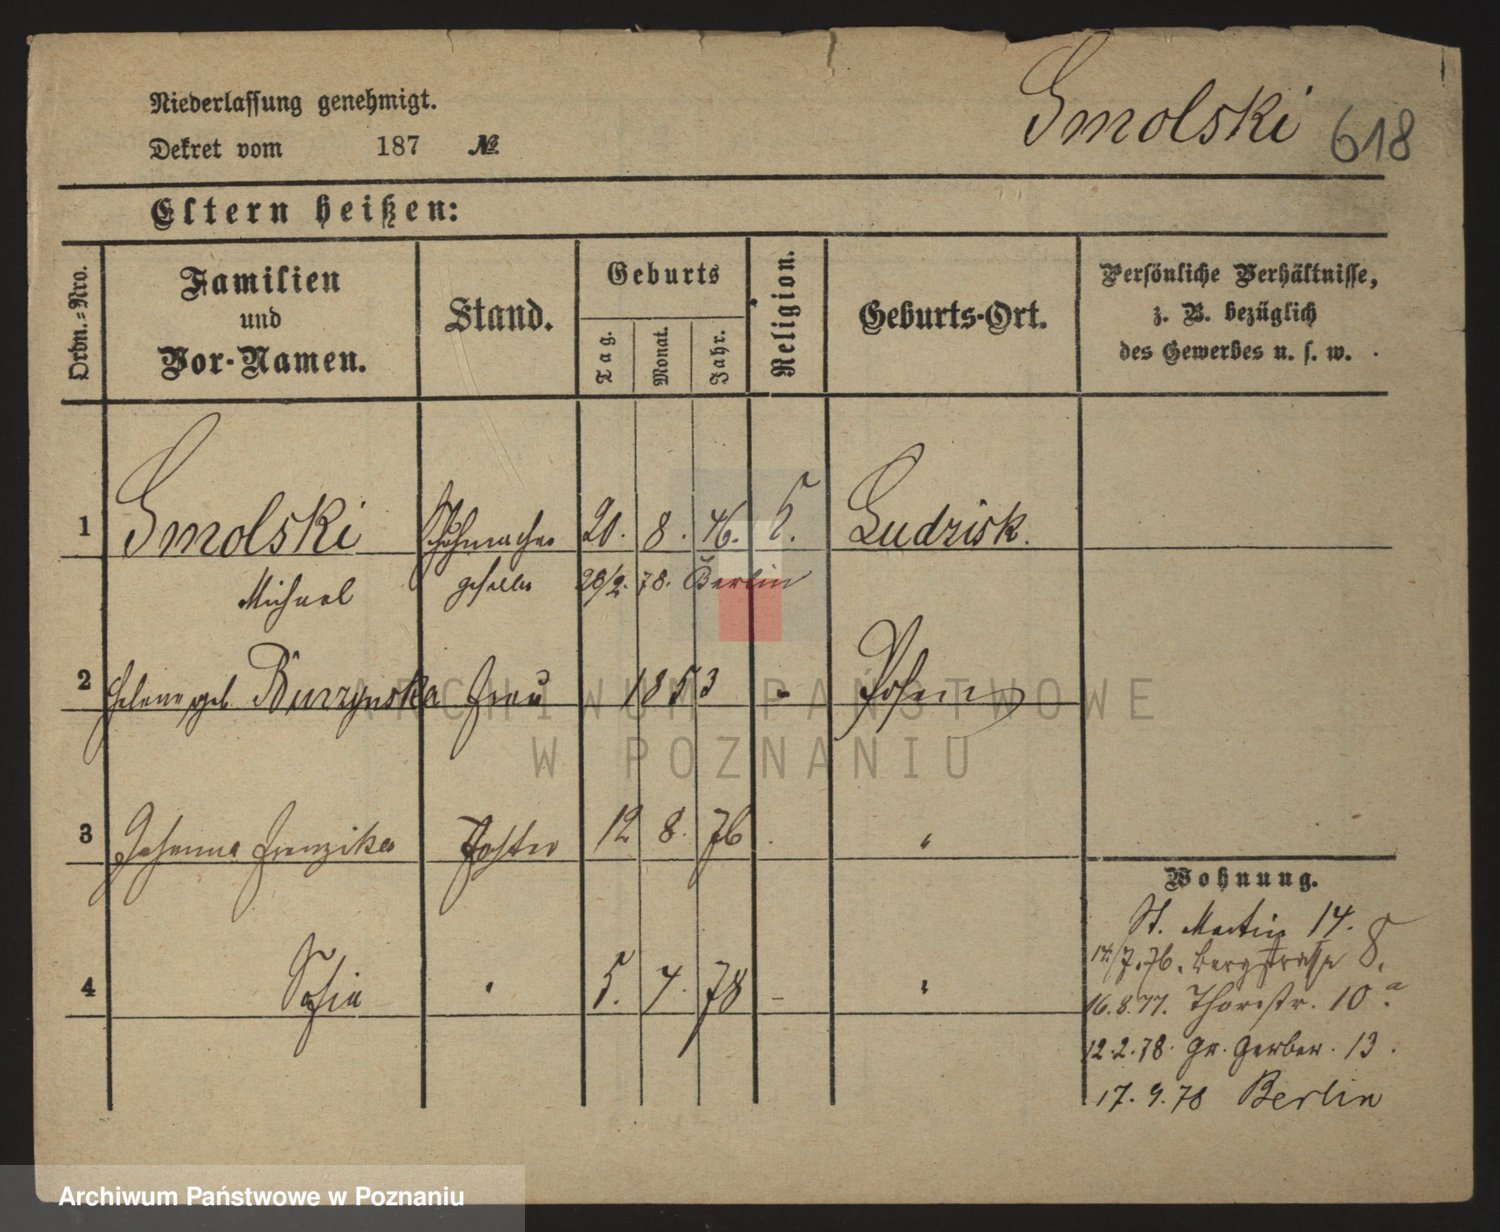 Niederlassung genehmigt.
Dekret vom 187 №
Smolski 618
Eltern heißen:
Ordn.=Nro.
Familien
und
Vor-Namen.
Stand.
Geburts
Tag.
Monat.
Jahr.
Religion.
Geburts-Ort.
Persönliche Verhältnisse,
z. B. bezüglich
des Gewerbes u. s. w.
1 Smolski Schuhmacher 20. 8. 46. Ludzisk.
Michael geselle 28/2. 78. Berlin
2 Helene geb. Frau 1853 - Posen
3 Johanna Tochter 12 8. 76 "
4 Sofia " 5. 4. 78 - "
Wohnung.
St. Martin 14.
14/7.76. Bergstrasse 8.
16.8.77. Thorstr. 10 a.
12.2.78. Gr. Gerber. 13.
17.9.78 Berlin
ARCHIWUM PAŃSTWOWE
W POZNANIU
Archiwum Państwowe w Poznaniu